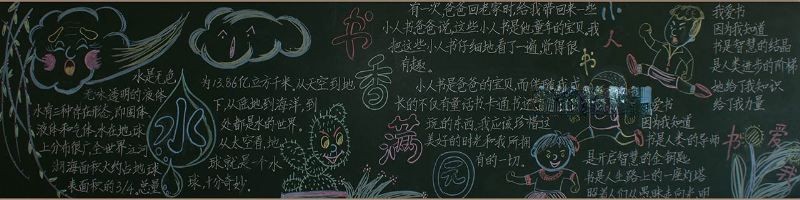 水是无色
无味透明的液体
水有三种存在形态,即固体
液体和气体,水在地球
上分布很广,全世界江河
湖海面积大约占地球
表面积的3/4。总量
水
为13.86亿立方千米,从天空到地
下,从陆地到海洋,到
处都是水的世界。
从太空看,地
球就是一个水
球,十分奇妙。
书香满园
有一次,爸爸回老家时,给我带回来一些
小人书,爸爸说,这些小人书是他童年的宝贝。我
把这些小人书仔细地看了一遍,觉得很
有趣。
小人书是爸爸的宝贝,而伴随我成
长的不仅有童话书、卡通书
玩的东西,我应该珍惜这
美好的时光和我所拥
有的一切。
小人书
我爱书
因为我知道
书是智慧的结晶
是人类进步的阶梯
她给了我知识
给了我力量
爱书
因为我知道
书是人类的导师
是开启智慧的金钥匙
书是人生路上的一座灯塔
照着人们从愚昧走向光明
我爱书